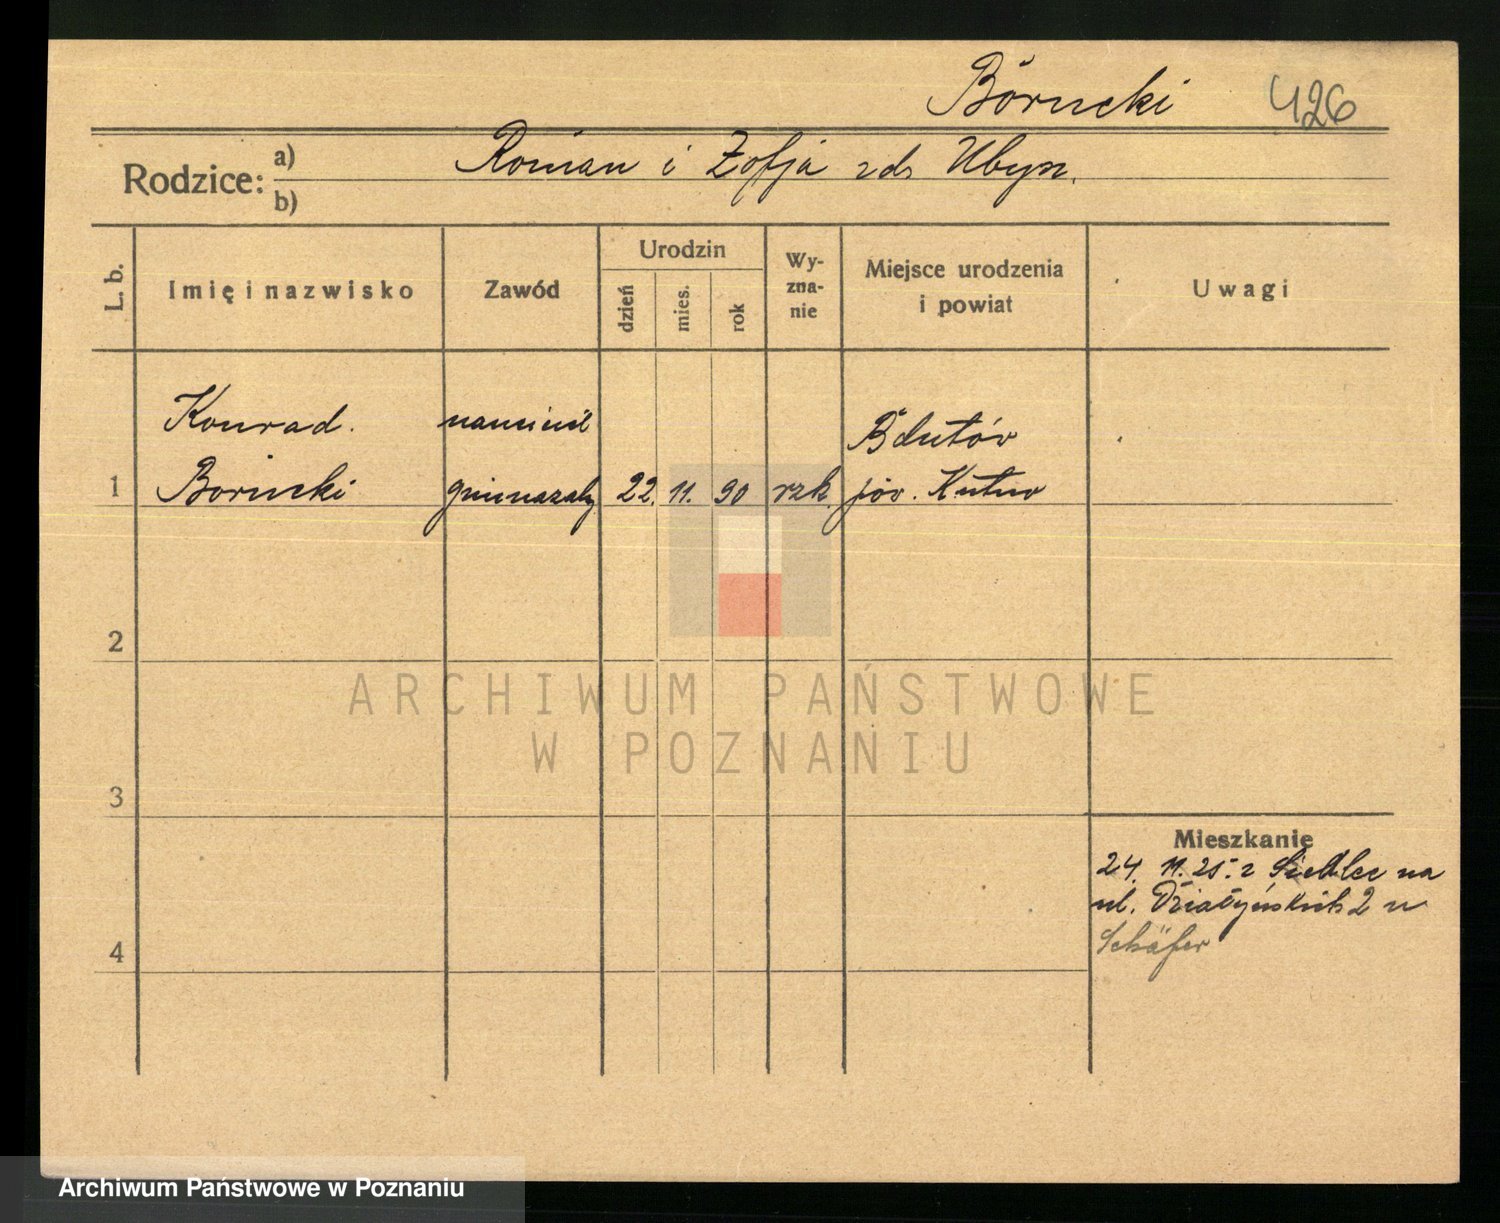 Borucki 426
Rodzice: a) b) Roman i Zofja zds Ubysz.
L. b.
Imię i nazwisko
Zawód
Urodzin
dzień
mies.
rok
Wy-
zna-
nie
Miejsce urodzenia
i powiat
Uwagi
Konrad.
Borucki
gimnazaln
1
22. 11. 90
rzk.
pow. Kutno
2
3
4
Mieszkanie
24. 11. 25. z Siedlec na
ul. Działyńskich 2 u
Schäfer
ARCHIWUM PAŃSTWOWE
W POZNANIU
Archiwum Państwowe w Poznaniu